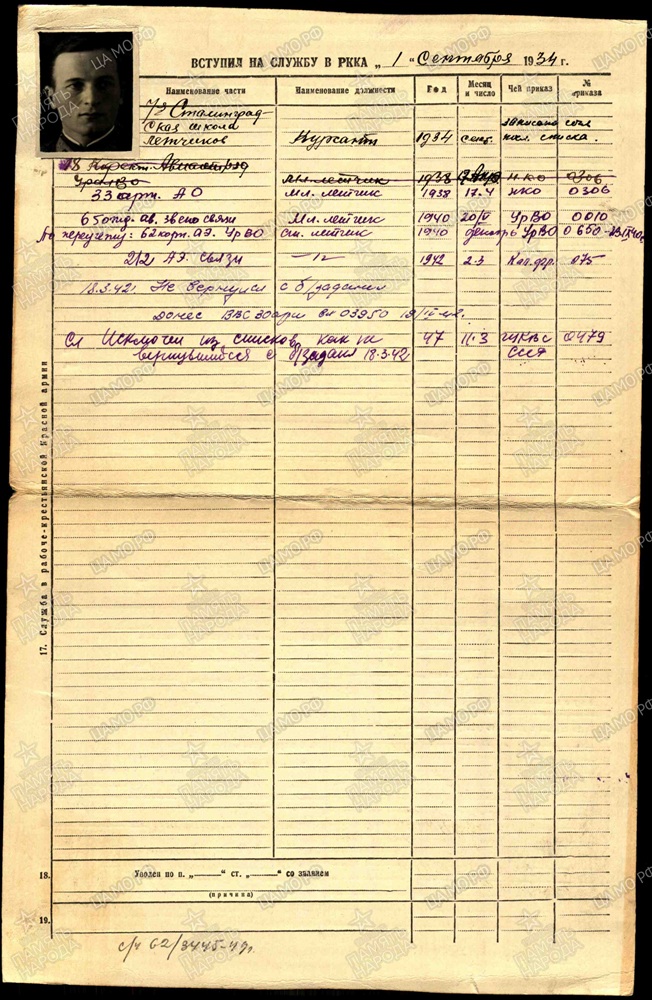 ВСТУПИЛ НА СЛУЖБУ В РККА „ 1 " Сентября 1934 г.
Наименование части Наименование должности Год Месяц и число Чей приказ № приказа
7/я Сталинград-
ская школа
летчиков Курсант 1934 сент. зачислен
кол. списка.
18
УралВО Мл. летчик 1938 НКО 0306
33 АО Мл. летчик 1938 17.4 НКО 0306
65 отд. ав. звено связи Мл. летчик 1940 УрВО 0010
По 62 корп. АЭ. УрВО ст. летчик 1940 УрВО 0650
212 АЭ. связи —"— 1942 2.3 075
18.3.42 Не вернулся с б/задания
Донес ВВС 30 арм 03950
Ст Исключен из списков, как не 47 11.3 СССР 0479
вернувшийся с б/задан 18.3.42
17. Служба в рабоче-крестьянской Красной армии
18. Уволен по п. „ “ ст. „ “ со званием
(причина)
19.
с/ч 62/3445-49г.
ПАМЯТЬ НАРОДА
ЦАМО.РФ